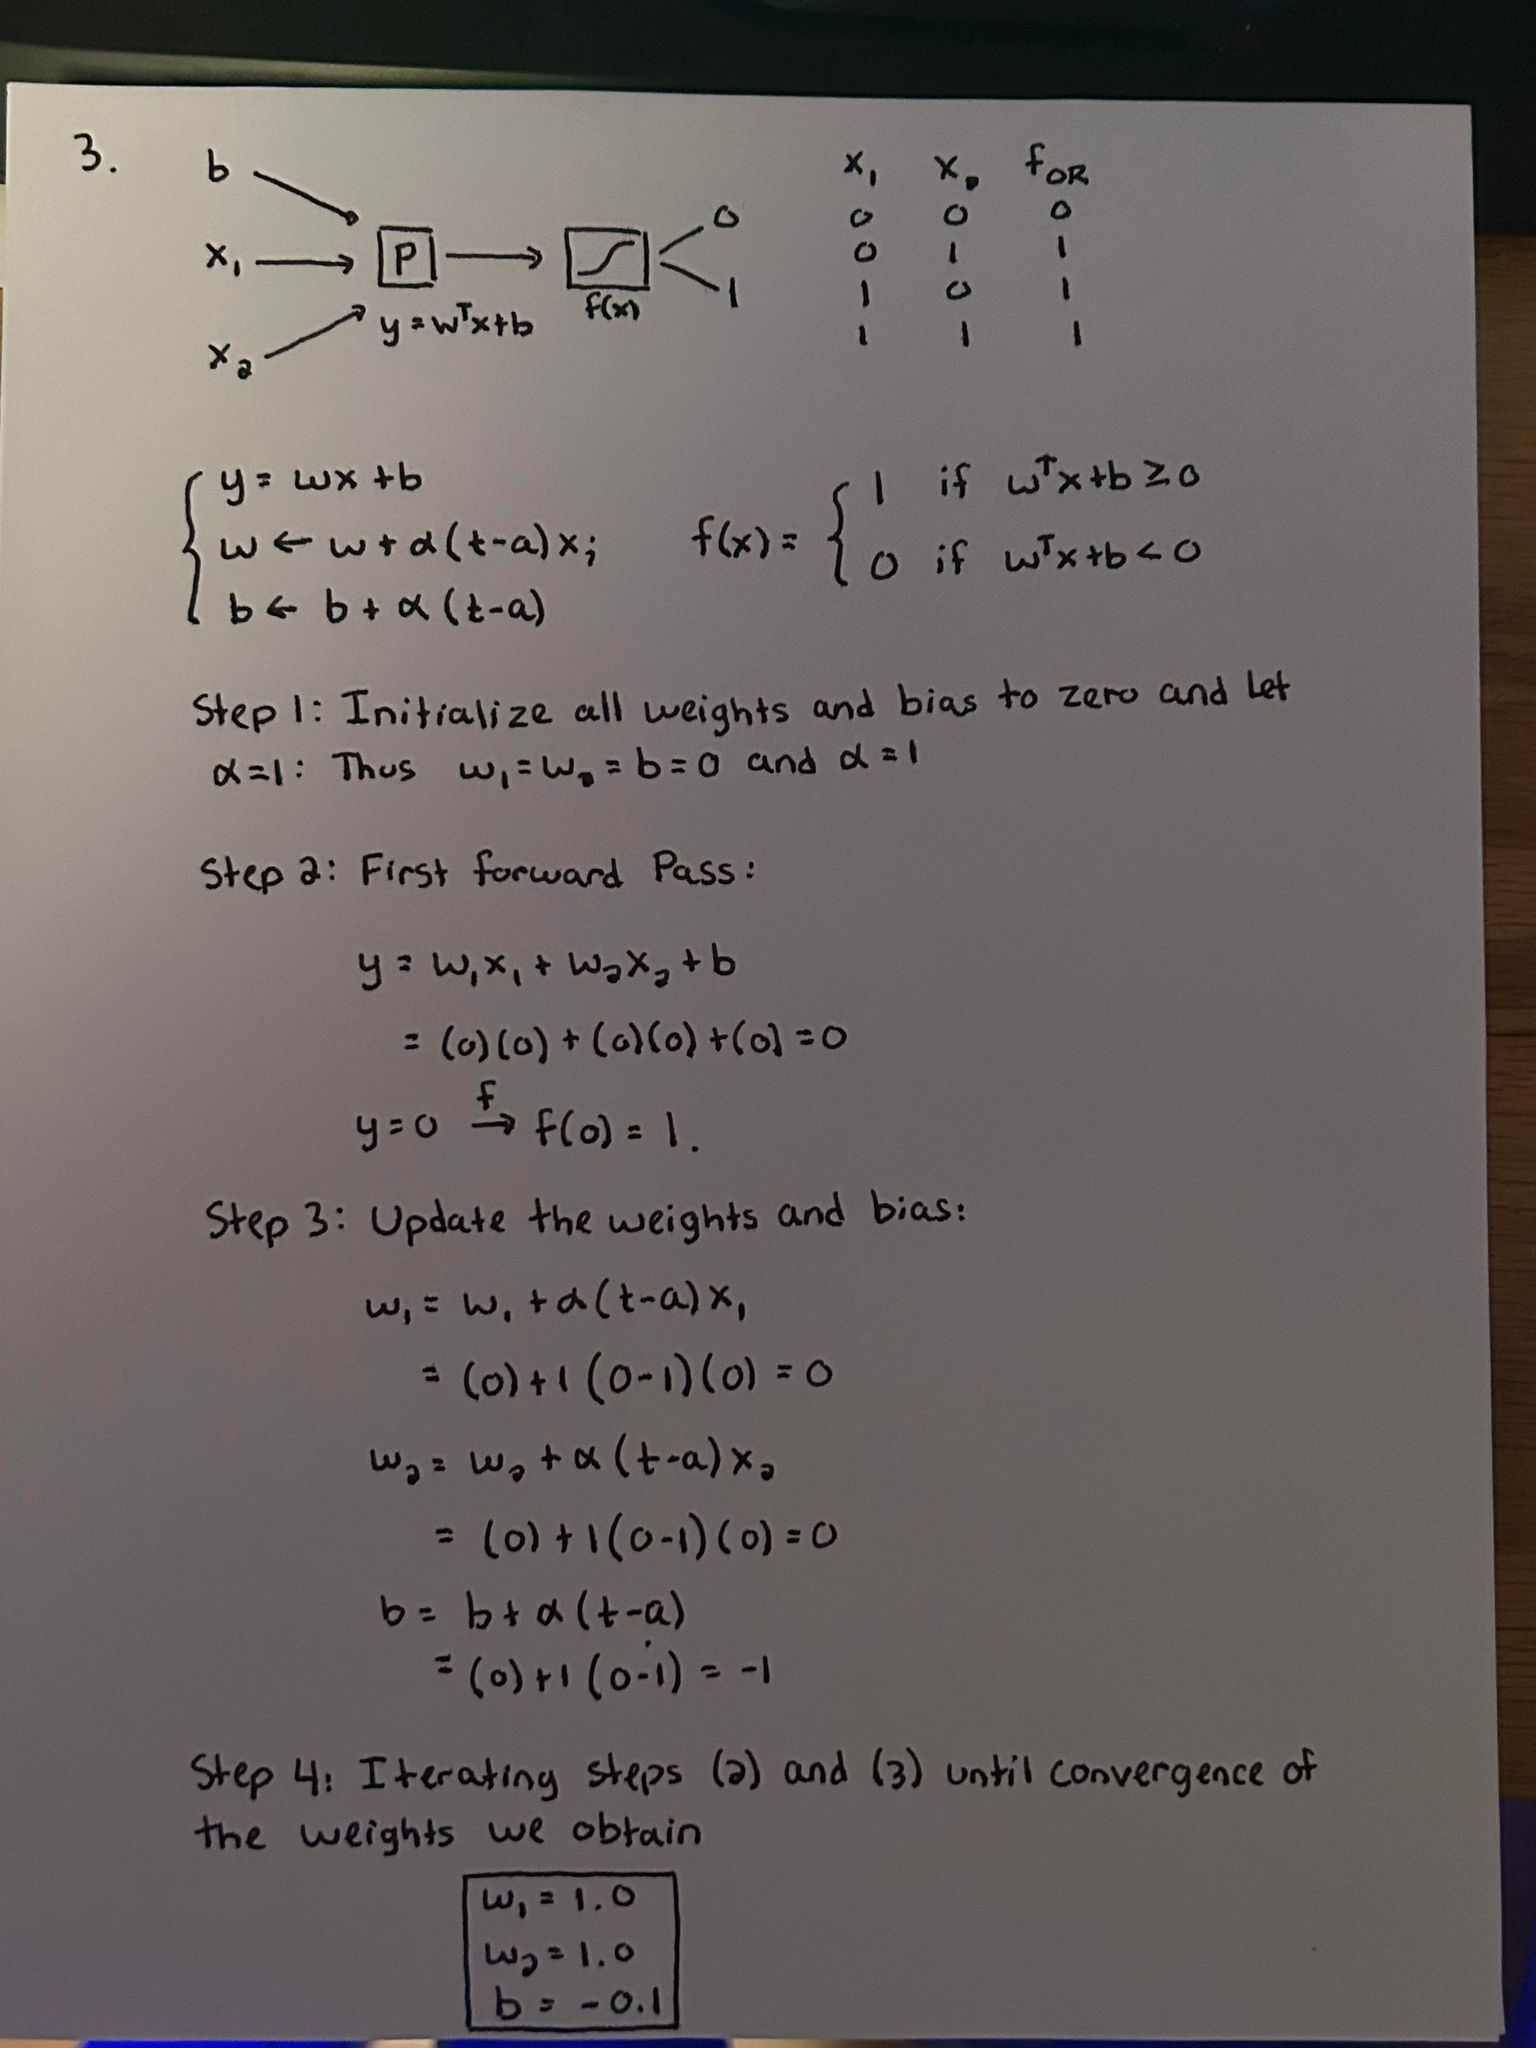 3.
b
x₁
x₂
P
y = wᵀx+b
f(x)
0
1
x₁ x₂ f_OR
0 0 0
0 1 1
1 0 1
1 1 1
y = wx + b
w ← w + α(t-a)xᵢ
b ← b + α(t-a)
f(x) = { 1 if wᵀx+b ≥ 0
0 if wᵀx+b < 0
Step 1: Initialize all weights and bias to zero and let
α=1: Thus w₁=w₂=b=0 and α=1
Step 2: First forward Pass:
y = w₁x₁ + w₂x₂ + b
= (0)(0) + (0)(0) + (0) = 0
y=0 →f f(0) = 1.
Step 3: Update the weights and bias:
w₁ = w₁ + α(t-a)x₁
= (0)+1(0-1)(0) = 0
w₂ = w₂ + α(t-a)x₂
= (0)+1(0-1)(0) = 0
b = b + α(t-a)
= (0)+1(0-1) = -1
Step 4: Iterating steps (2) and (3) until convergence of
the weights we obtain
w₁ = 1.0
w₂ = 1.0
b = -0.1